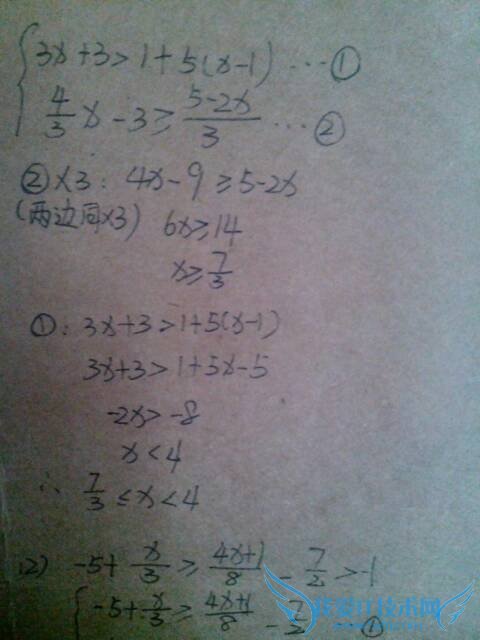 3x+3>1+5(x-1) ...①
4/3 x-3≥(5-2x)/3 ...②
②×3: 4x-9≥5-2x
(两边同×3) 6x≥14
x≥7/3
①: 3x+3>1+5(x-1)
3x+3>1+5x-5
-2x>-8
x<4
∴ 7/3≤x<4
(2) -5+x/3≥(4x+1)/8-7/2>-1
-5+x/3≥(4x+1)/8-7/2 ①
我爱IT技术网